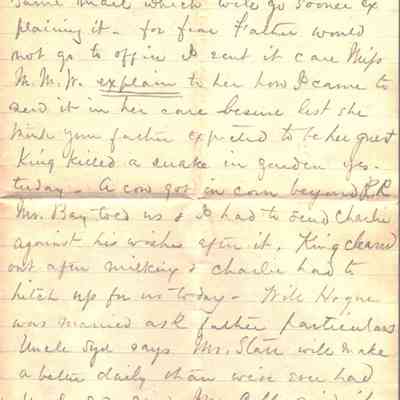 same mail which will go sooner ex
plaining it - for fear Father would
not go to office I sent it care Miss
M. M. W. explain to her how I came to
send it in her care besure lest she
think your father expected to be her guest
King killed a snake in garden yes-
terday - A cow got in corn beyond R.R
Mr. Bay told us & I had to send Charlie
against his wishes after it. King cleared
out after milking & Charlie had to
hitch up for us today - Will Hogue
was married ask father particulars
Uncle Syd says Mr. Starr will make
a better daily than wise ever had